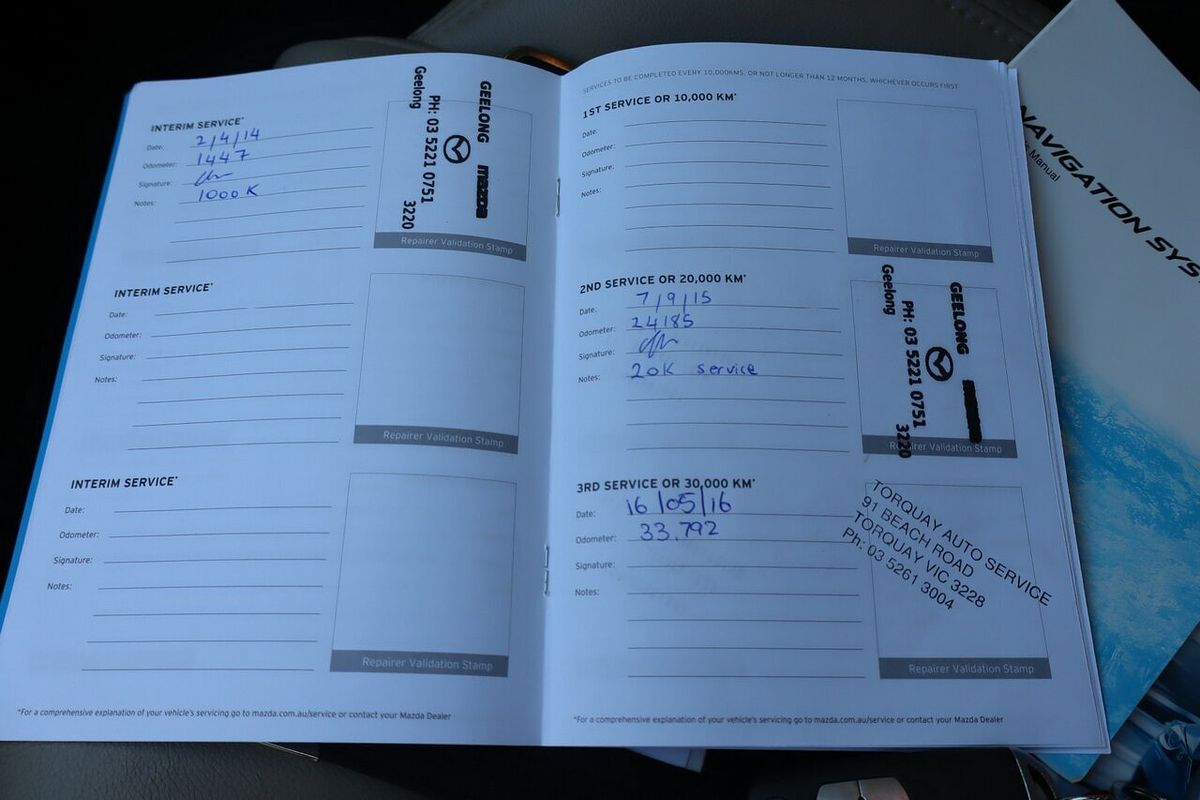 INTERIM SERVICE*
Date: 2/4/14
Odometer: 1447
Signature:
Notes: 1000 K
GEELONG mazda
PH: 03 5221 0751
Geelong 3220
Repairer Validation Stamp
INTERIM SERVICE*
Date:
Odometer:
Signature:
Notes:
Repairer Validation Stamp
INTERIM SERVICE*
Date:
Odometer:
Signature:
Notes:
Repairer Validation Stamp
*For a comprehensive explanation of your vehicle's servicing go to mazda.com.au/service or contact your Mazda Dealer
SERVICES TO BE COMPLETED EVERY 10,000KMS, OR NOT LONGER THAN 12 MONTHS, WHICHEVER OCCURS FIRST
1ST SERVICE OR 10,000 KM*
Date:
Odometer:
Signature:
Notes:
Repairer Validation Stamp
2ND SERVICE OR 20,000 KM*
Date: 7/9/15
Odometer: 24185
Signature:
Notes: 20K service
GEELONG mazda
PH: 03 5221 0751
Geelong 3220
Repairer Validation Stamp
3RD SERVICE OR 30,000 KM*
Date: 16/05/16
Odometer: 33.792
Signature:
Notes:
TORQUAY AUTO SERVICE
91 BEACH ROAD
TORQUAY VIC 3228
Ph: 03 5261 3004
Repairer Validation Stamp
*For a comprehensive explanation of your vehicle's servicing go to mazda.com.au/service or contact your Mazda Dealer
NAVIGATION SYS
Manual